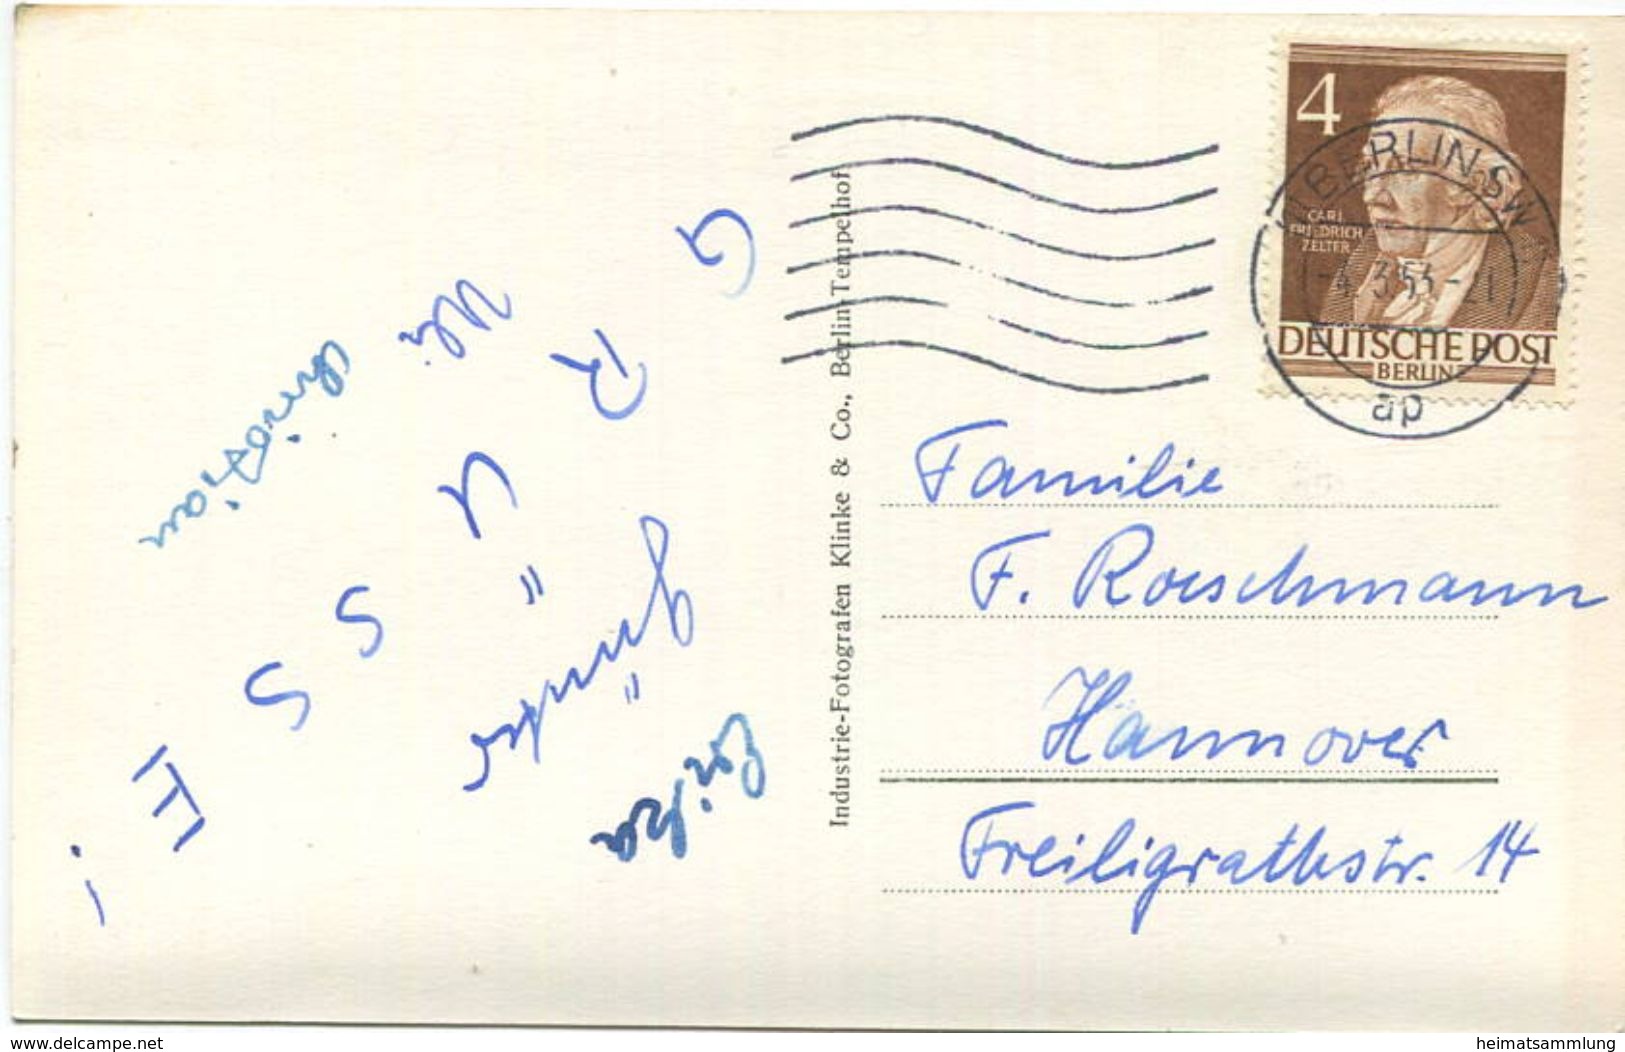 4
CARL
FRIEDRICH
ZELTER
DEUTSCHE POST
BERLIN
BERLIN SW
-4.3.53-21
ap
GRÜSSE!
Uli
Christian
Günter
Erika
Industrie-Fotografen Klinke & Co., Berlin-Tempelhof
Familie
F. Roeschmann
Hannover
Freiligrathstr. 14
www.delcampe.net
heimatsammlung